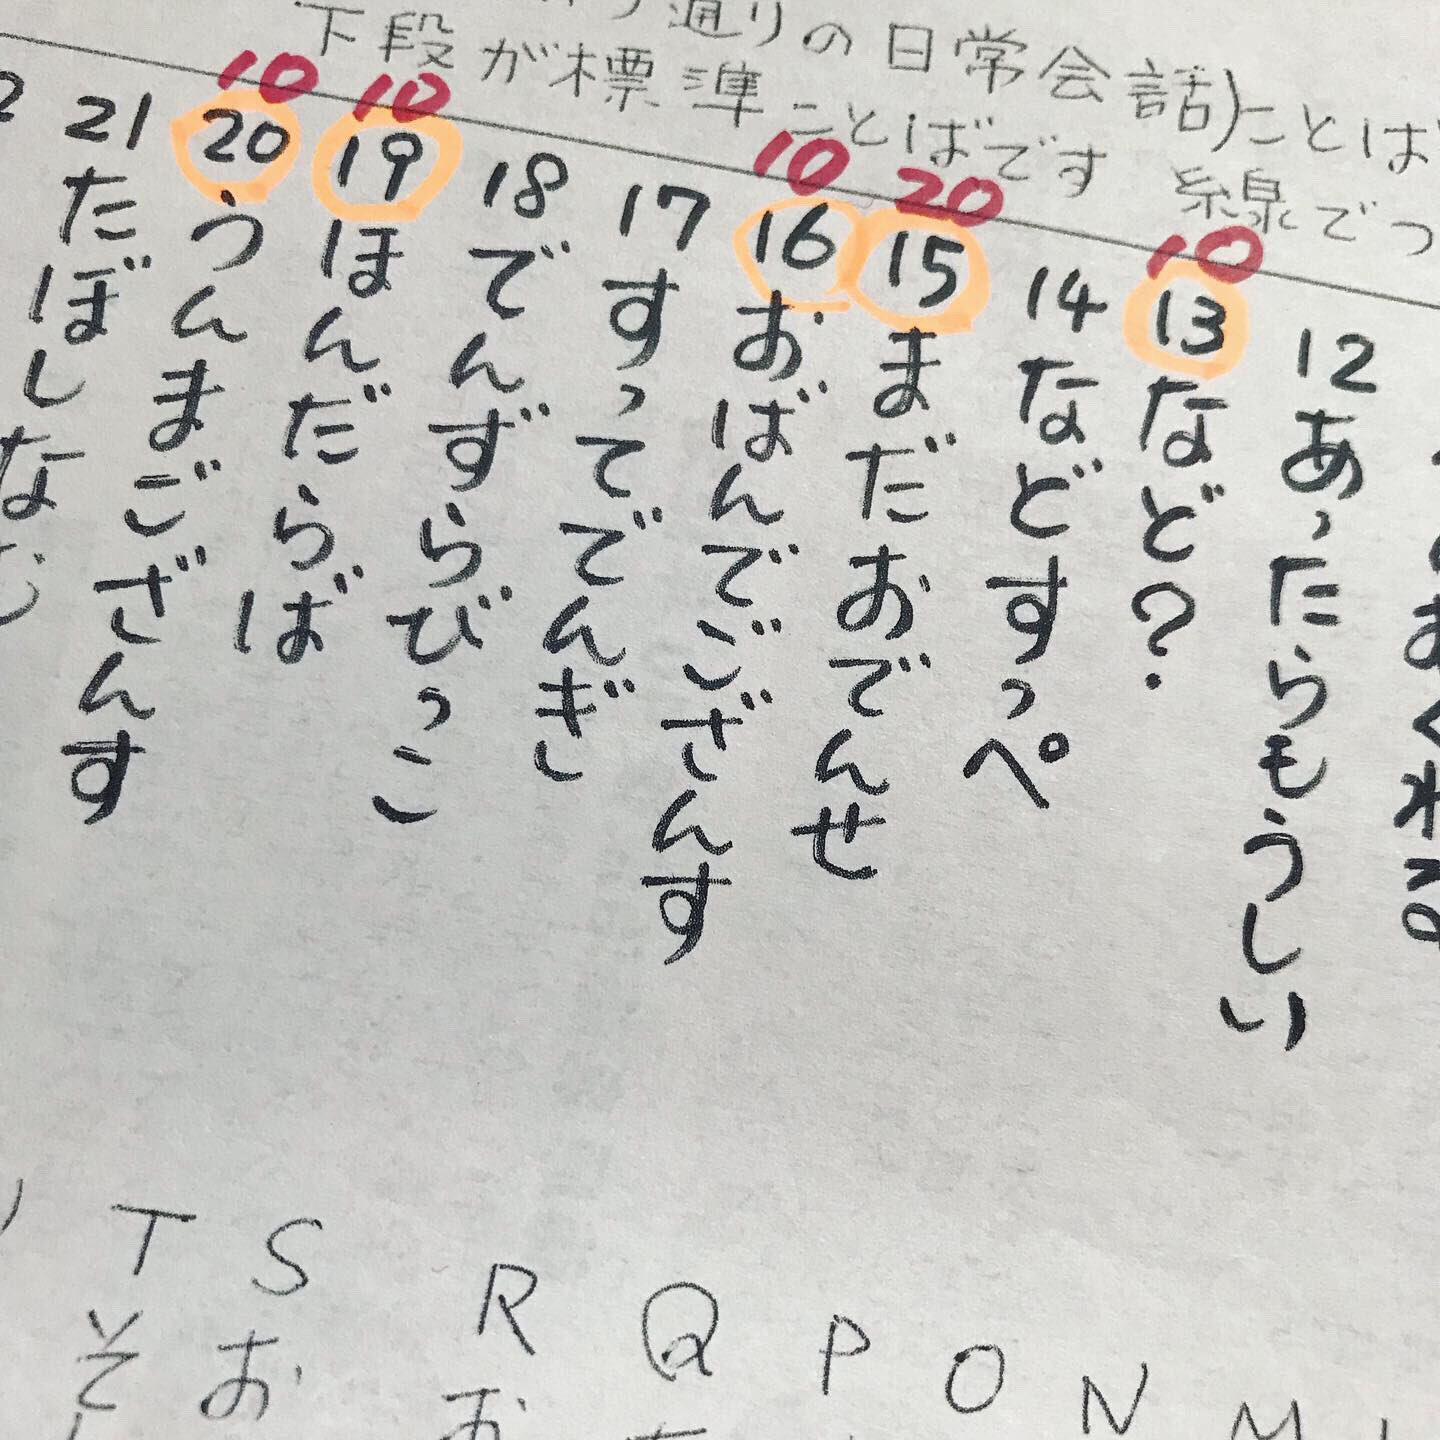 通りの日常会話)ことば
下段が標準ことばです 線でつ
おくれる
12 あったらもうしい
10
13 など?
14 などすっぺ
20
15 まだおでんせ
10
16 おばんでござんす
17 すってでんぎ
18 でんずらびっこ
10
19 ほんだらば
10
20 うんまござんす
21 たぼしな
N
O
P
Q
R お
S お
T そ